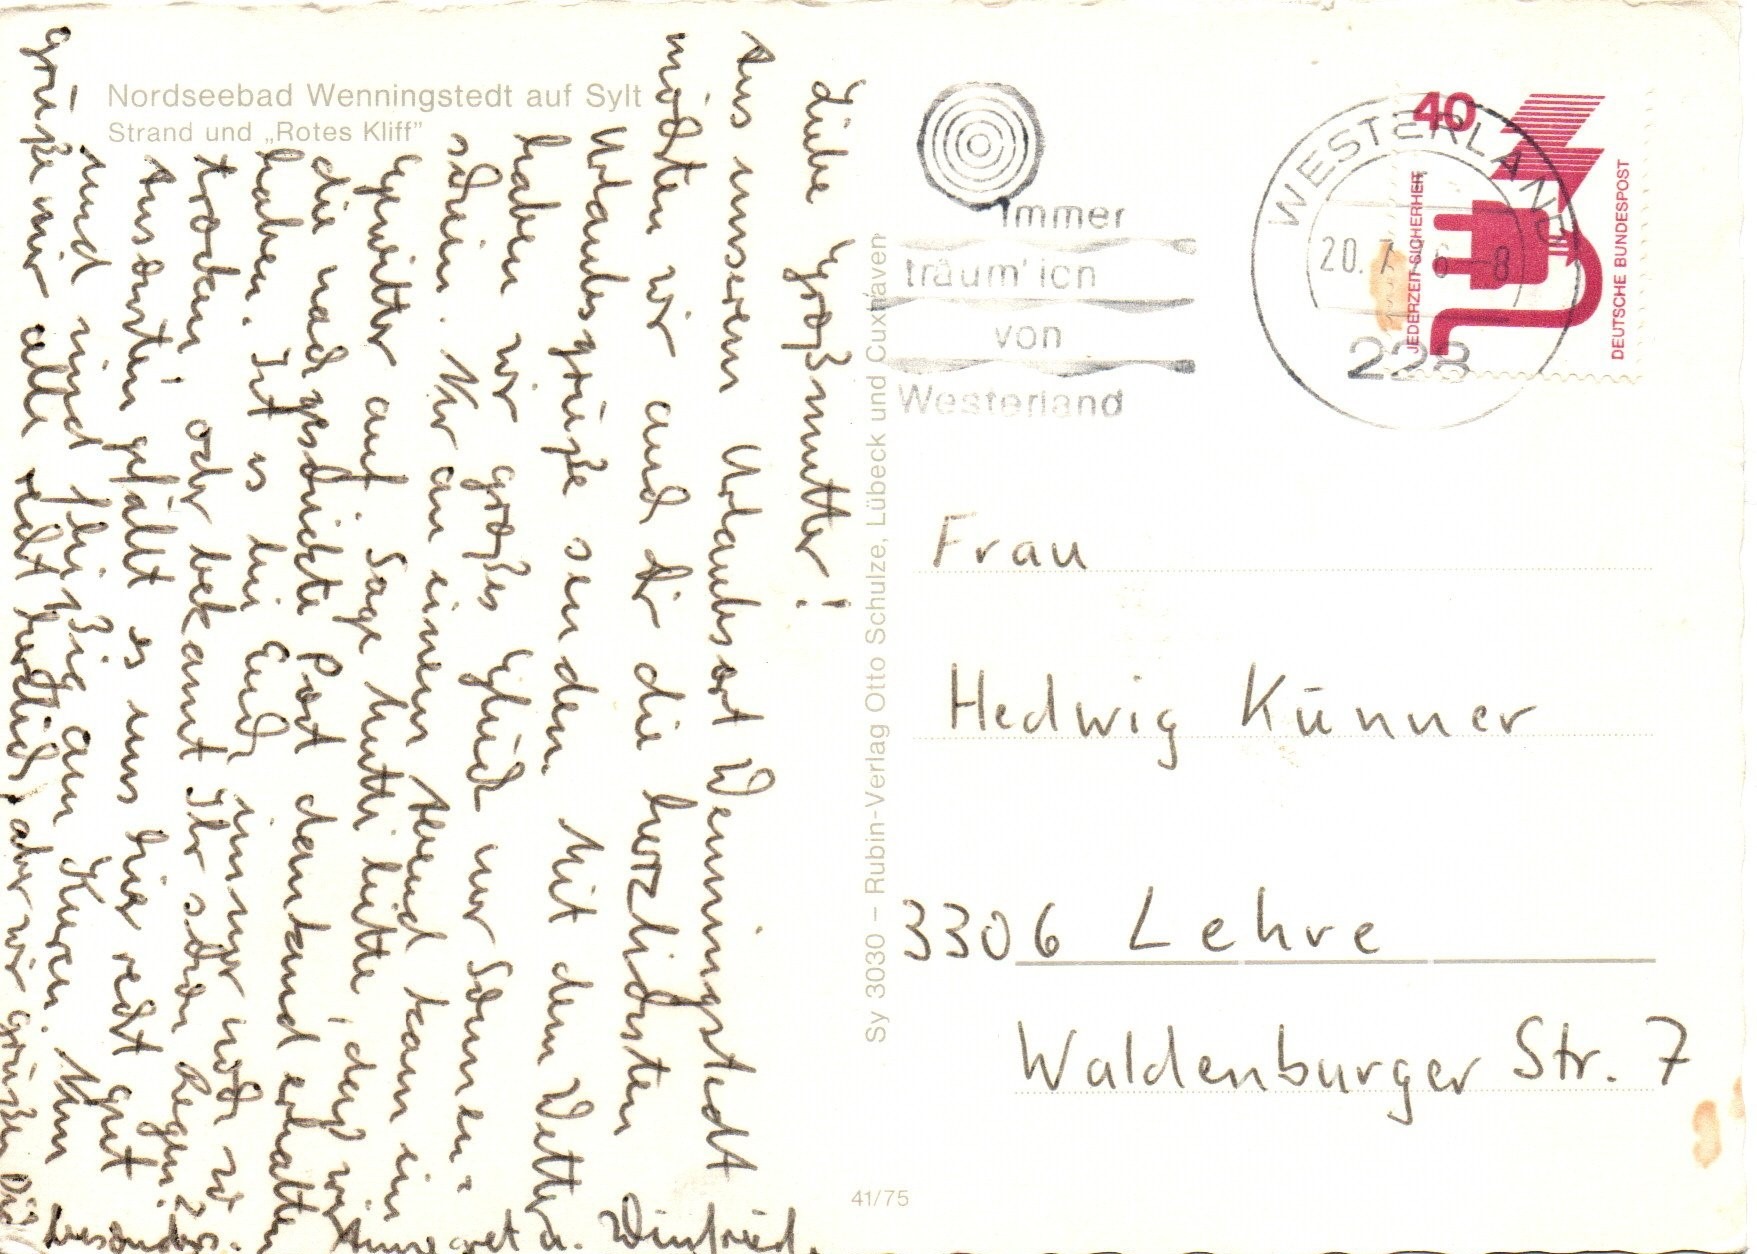 Nordseebad Wenningstedt auf Sylt
Strand und „Rotes Kliff”
Liebe Großmutter!
Aus unserem Urlaubsort Wenningstedt
möchten wir auch Dir die herzlichsten
Urlaubsgrüße senden. Mit dem Wetter
haben wir großes Glück nur Sonnen-
schein. Nur an einem Abend kam ein
Gewitter auf. Sage Mutti bitte, daß wir
die nachgeschickte Post dankend erhalten
haben. Ist es bei Euch immer noch so
trocken, oder bekamt Ihr schon Regen?
Ansonsten gefällt es uns hier recht gut
und sind fleißig am Kuren. Nun
grüße mir alle recht herzlich, aber wir grüßen Dich
besonders.
Annegret u. Winfried.
Sy 3030 – Rubin-Verlag Otto Schulze, Lübeck und Cuxhaven
41/75
Immer
träum' ich
von
Westerland
WESTERLAND
20. 7. 6-8
228
40
JEDERZEIT SICHERHEIT
DEUTSCHE BUNDESPOST
Frau
Hedwig Künner
3306 Lehre
Waldenburger Str. 7